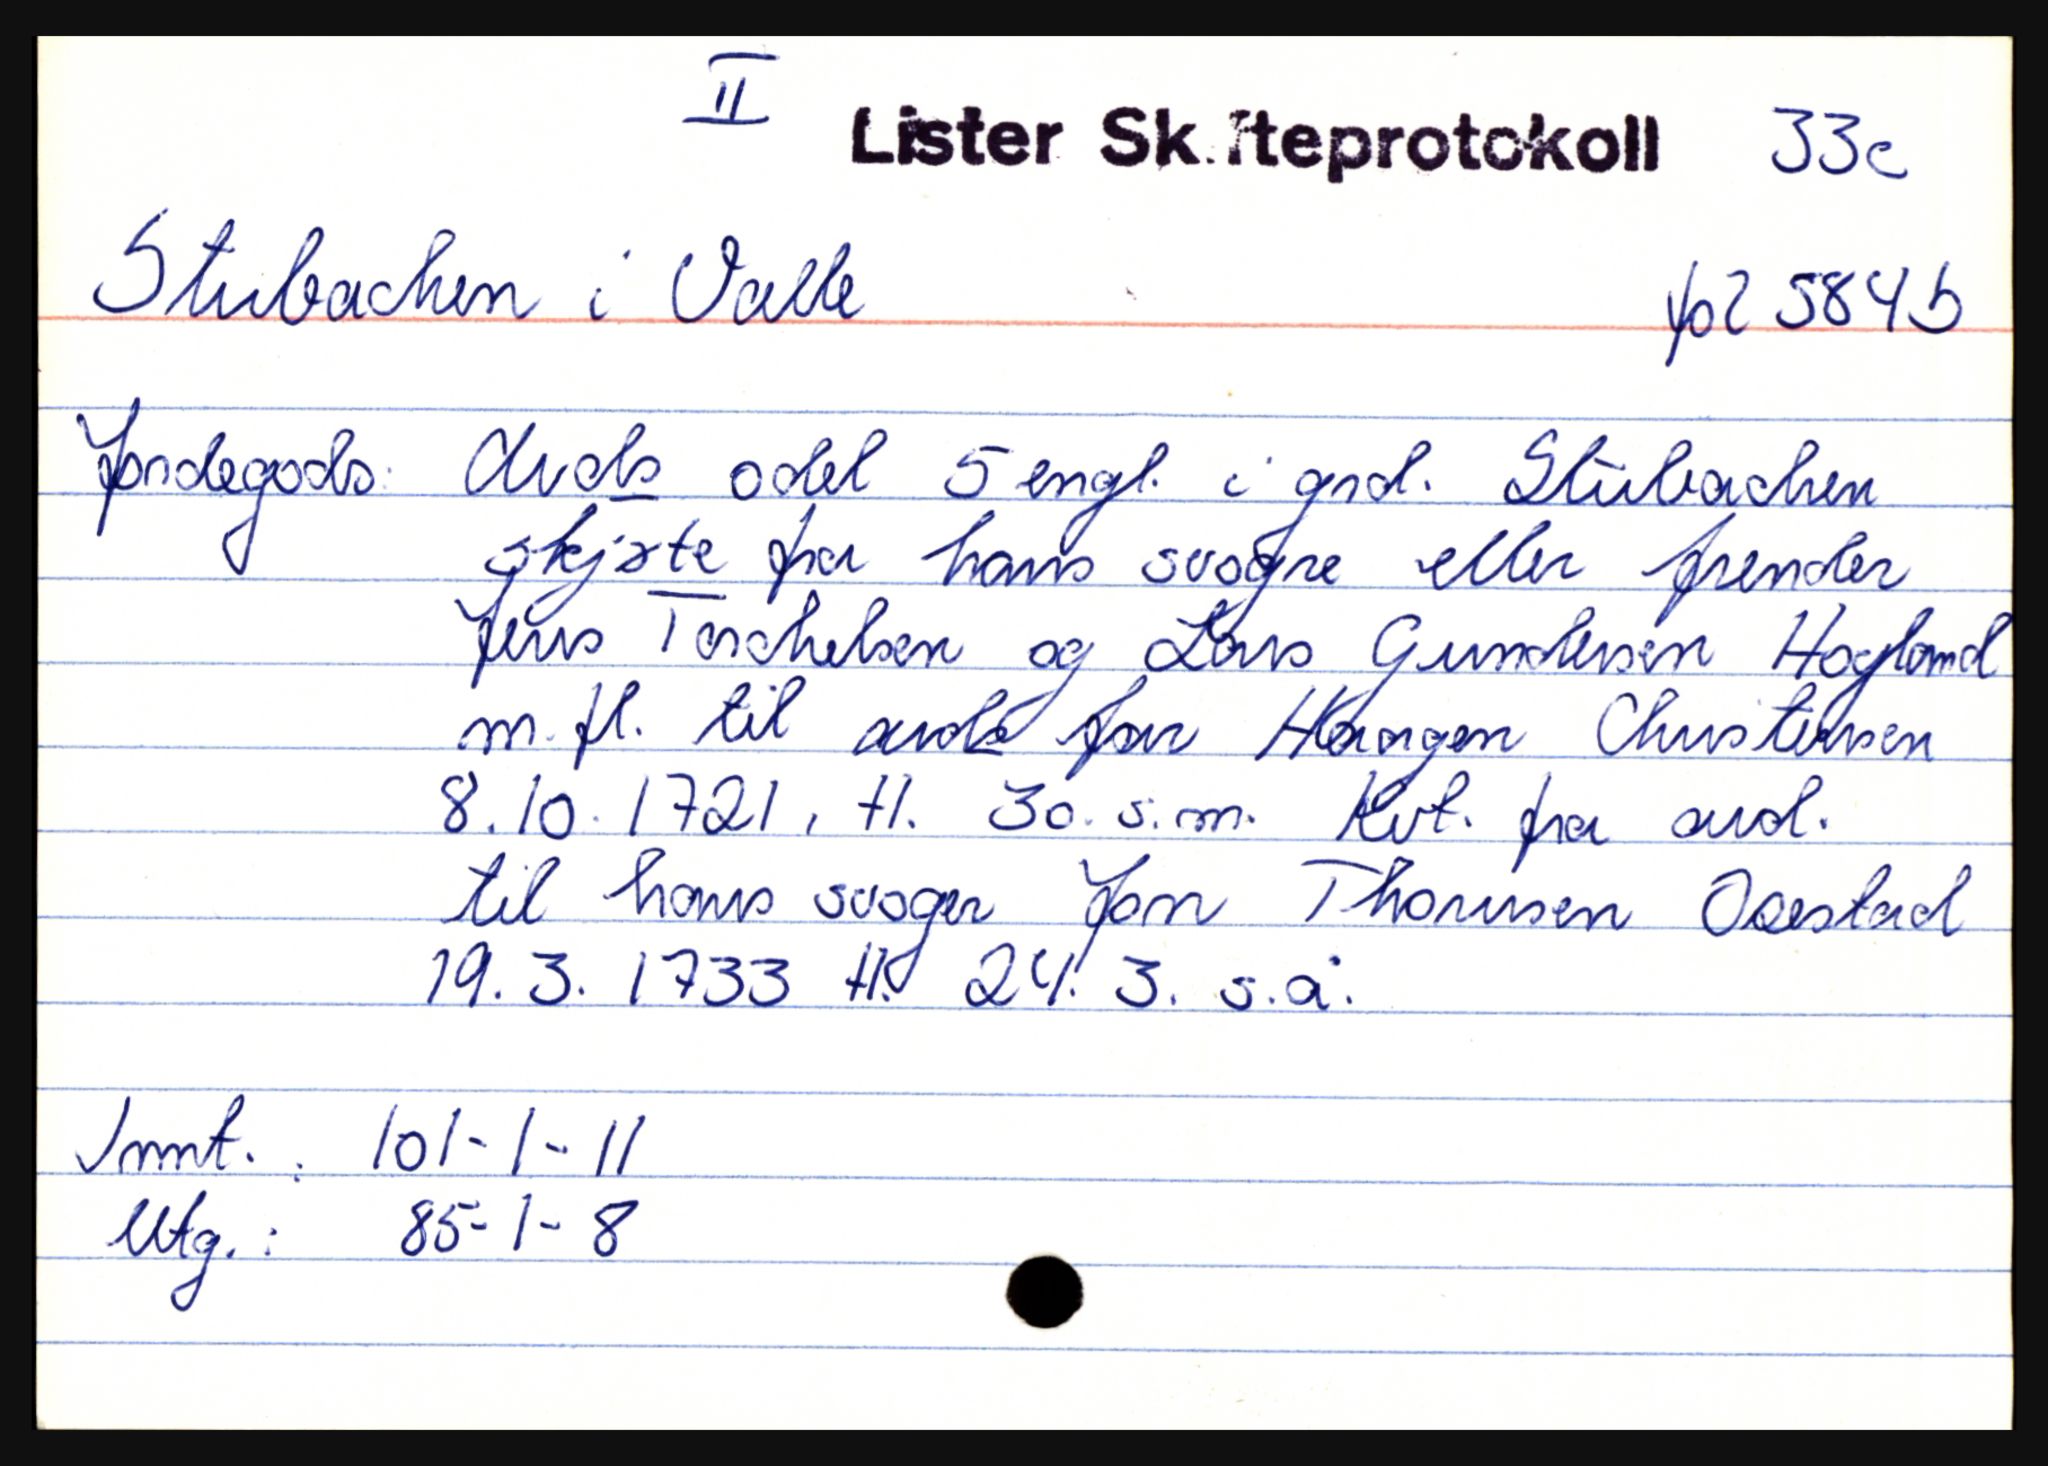 II Lister Skifteprotokoll 33c
Stubachen i Valle fol 584b
Jordegods: Avds odel 5 engl. i grd. Stubachen
skjøte fra hans svogre eller frender
Jens Torchelsen og Lars Gundersen Høyland
m. fl. til avds far Haagen Christensen
8.10.1721, tl. 30. s.m. Kvt. fra avd.
til hans svoger Jon Thorusen Ovestad
19.3.1733 tl. 24.3. s.å.
Innt. : 101-1-11
Utg. : 85-1-8